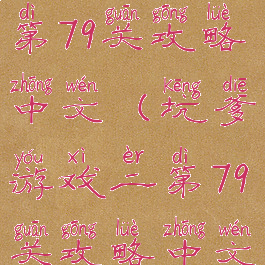 dì guān gōng lüè
第79关攻略
zhōng wén kēng diē
中文(坑爹
yóu xì èr dì
游戏二第79
guān gōng lüè zhōng wén
关攻略中文